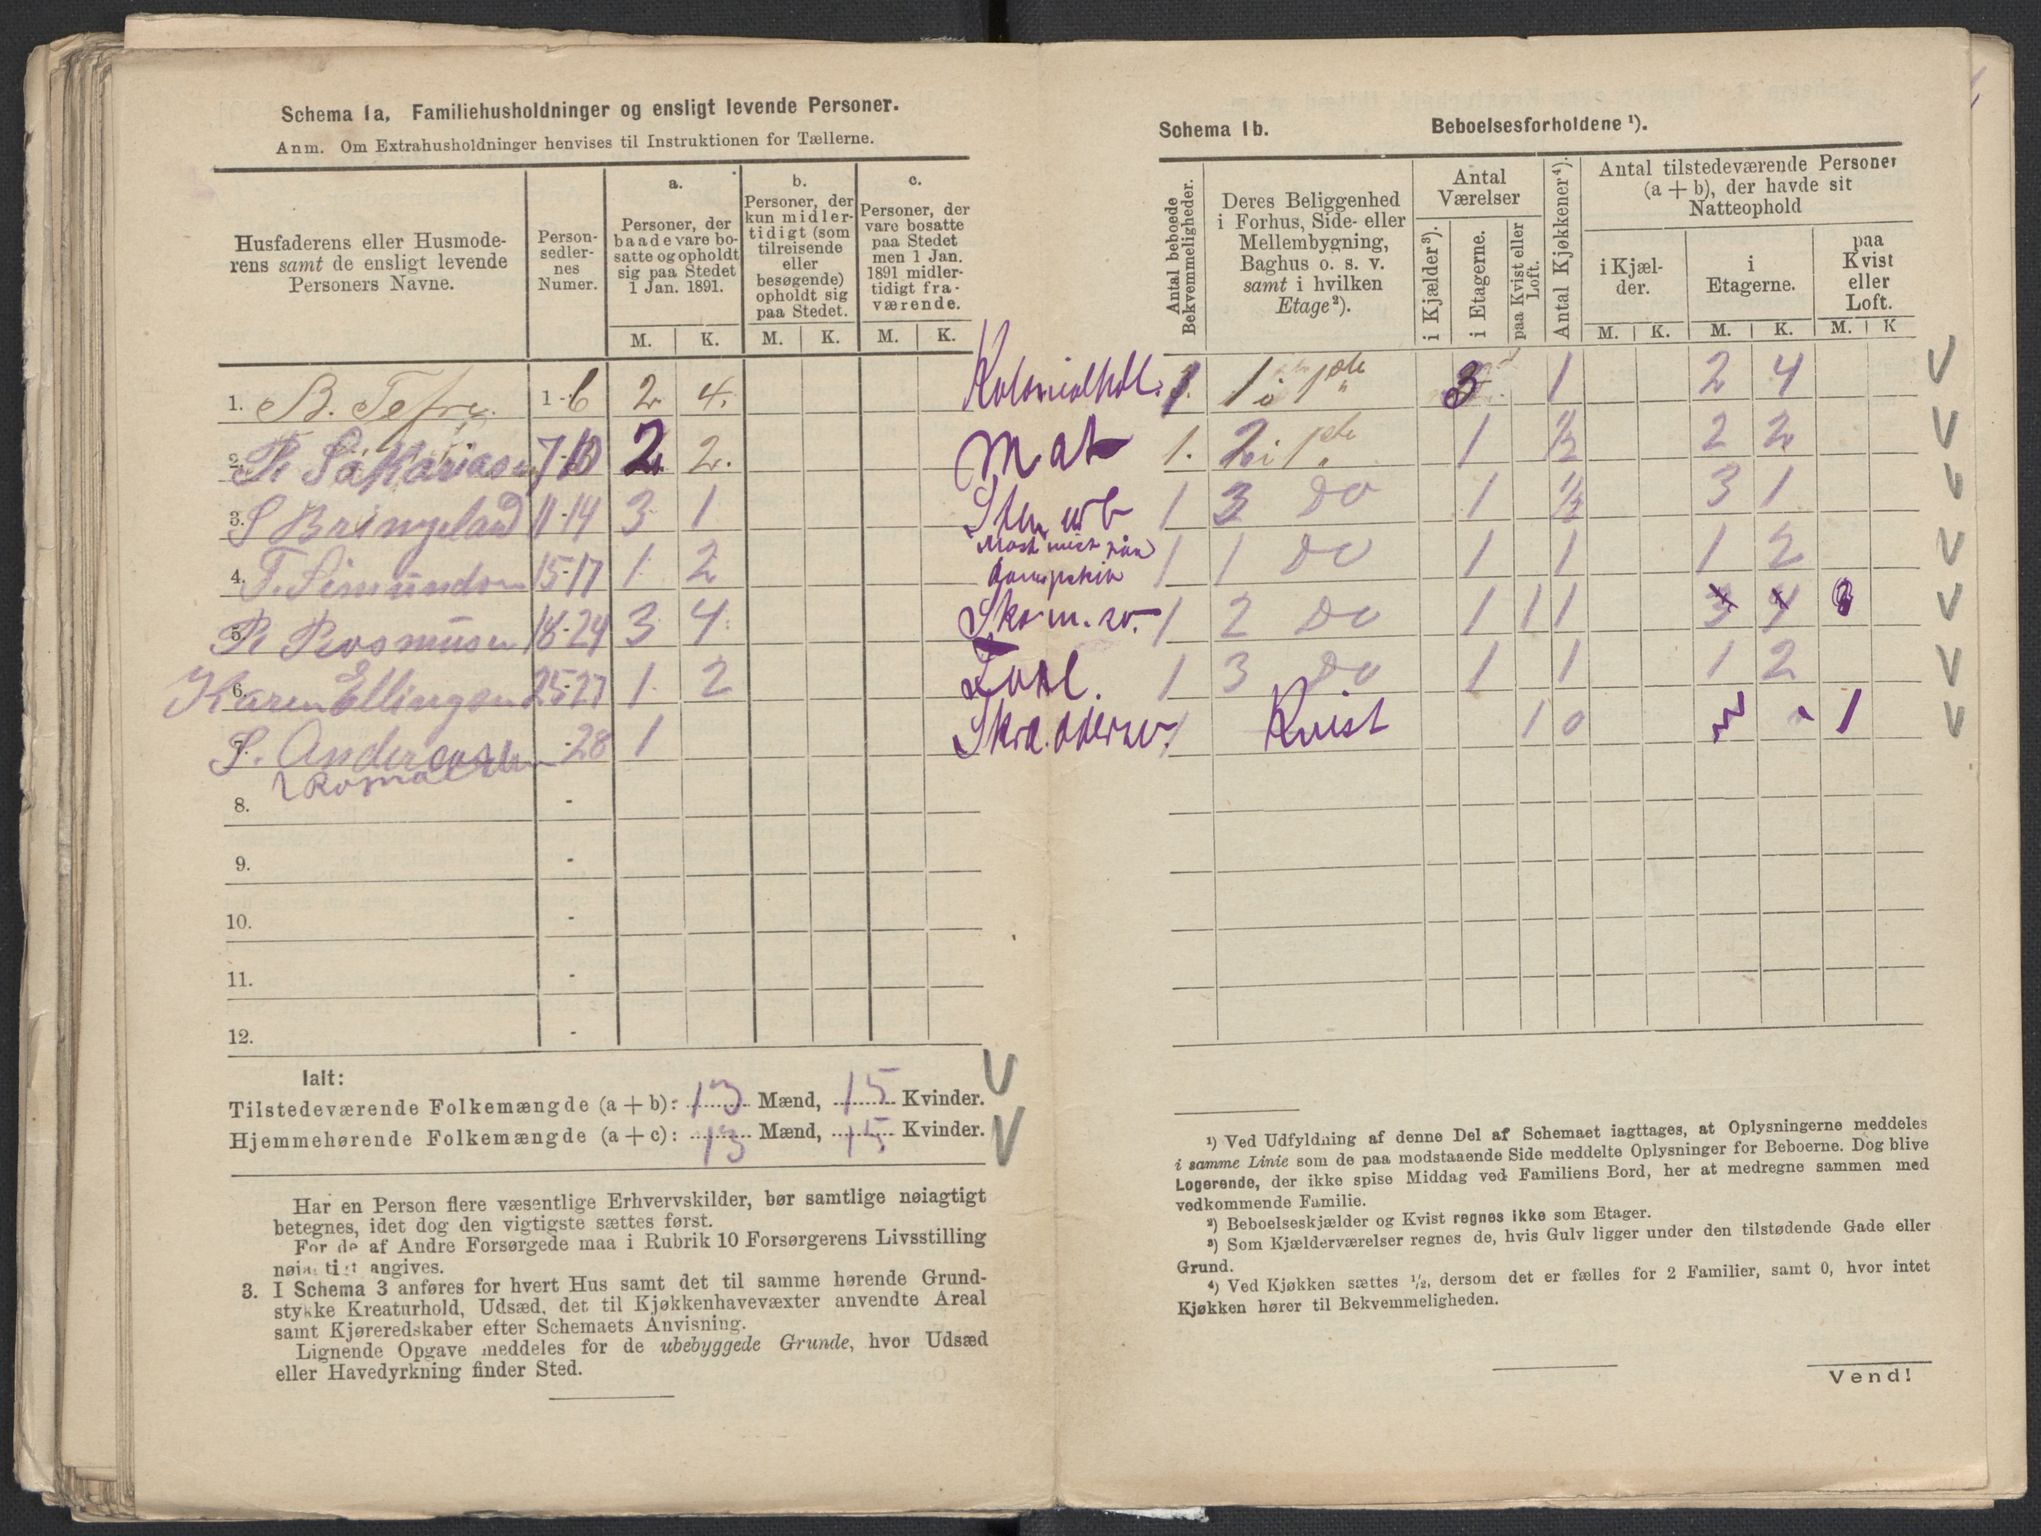 Schema 1a, Familiehusholdninger og ensligt levende Personer.
Anm. Om Extrahusholdninger henvises til Instruktionen for Tællerne.
Husfaderens eller Husmode-
rens samt de ensligt levende
Personers Navne.
Person-
sedler-
nes
Numer.
a.
Personer, der
baade vare bo-
satte og opholdt
sig paa Stedet
1 Jan. 1891.
b.
Personer, der
kun midler-
tidigt (som
tilreisende
eller
besøgende)
opholdt sig
paa Stedet.
c.
Personer, der
vare bosatte
paa Stedet
men 1 Jan.
1891 midler-
tidigt fra-
værende.
M. K. M. K. M. K.
1. B. 1-6 2 4.
2. R Sakariasen 7-10 2 2.
3. S Bringeland 11-14 3 1
4. T. Simundsen 15-17 1 2
5. R Rosmusen 18-24 3 4
6. Karen Ellingsen 25-27 1 2
7. S. Andersen -28 1
8. -
9. -
10. -
11. -
12. -
Ialt:
Tilstedeværende Folkemængde (a + b): 13 Mænd, 15 Kvinder. V
Hjemmehørende Folkemængde (a + c): 13 Mænd, 15 Kvinder. V
Har en Person flere væsentlige Erhvervskilder, bør samtlige nøiagtigt
betegnes, idet dog den vigtigste sættes først.
For de af Andre Forsørgede maa i Rubrik 10 Forsørgerens Livsstilling
nøiagtigt angives.
3. I Schema 3 anføres for hvert Hus samt det til samme hørende Grund-
stykke Kreaturhold, Udsæd, det til Kjøkkenhavevæxter anvendte Areal
samt Kjøreredskaber efter Schemaets Anvisning.
Lignende Opgave meddeles for de ubebyggede Grunde, hvor Udsæd
eller Havedyrkning finder Sted.
Schema 1b. Beboelsesforholdene ¹).
Antal beboede
Bekvemmeligheder.
Deres Beliggenhed
i Forhus, Side- eller
Mellembygning,
Baghus o. s. v.
samt i hvilken
Etage²).
Antal
Værelser
i Kjælder³).
i Etagerne.
paa Kvist eller
Loft.
Antal Kjøkkener⁴).
Antal tilstedeværende Personer
(a + b), der havde sit
Natteophold
i Kjæl-
der.
i
Etagerne.
paa
Kvist
eller
Loft.
M. K. M. K. M. K
Kolonialhdl. 1. 1 i 1ste 3 1 2 4 V
Mat 1. 2 i 1ste 1 ½ 2 2 V
1 3 Do 1 ½ 3 1 V
1 1 Do 1 1 1 2 V
Skom. sv. 1 2 Do 1 1 1 3 4 V
1 3 Do 1 1 1 2 V
1 Kvist 1 0 1 V
¹) Ved Udfyldning af denne Del af Schemaet iagttages, at Oplysningerne meddeles
i samme Linie som de paa modstaaende Side meddelte Oplysninger for Beboerne. Dog blive
Logerende, der ikke spise Middag ved Familiens Bord, her at medregne sammen med
vedkommende Familie.
²) Beboelseskjælder og Kvist regnes ikke som Etager.
³) Som Kjælderværelser regnes de, hvis Gulv ligger under den tilstødende Gade eller
Grund.
⁴) Ved Kjøkken sættes ½, dersom det er fælles for 2 Familier, samt 0, hvor intet
Kjøkken hører til Bekvemmeligheden.
Vend!